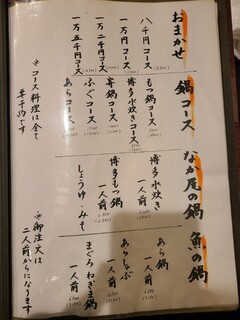 おまかせ
八千円コース
一万円コース
一万二千円コース
一万五千円コース
鍋コース
もつ鍋コース
博多水炊きコース
寄鍋コース
ふぐコース
あらコース
※コース料理は全て
要予約です
なか尾の鍋
博多水炊き
一人前
博多もつ鍋
一人前
しょうゆ・みそ
魚の鍋
あら鍋
一人前
あらしゃぶ
一人前
まぐろねぎま鍋
一人前
※御注文は
二人前からになります